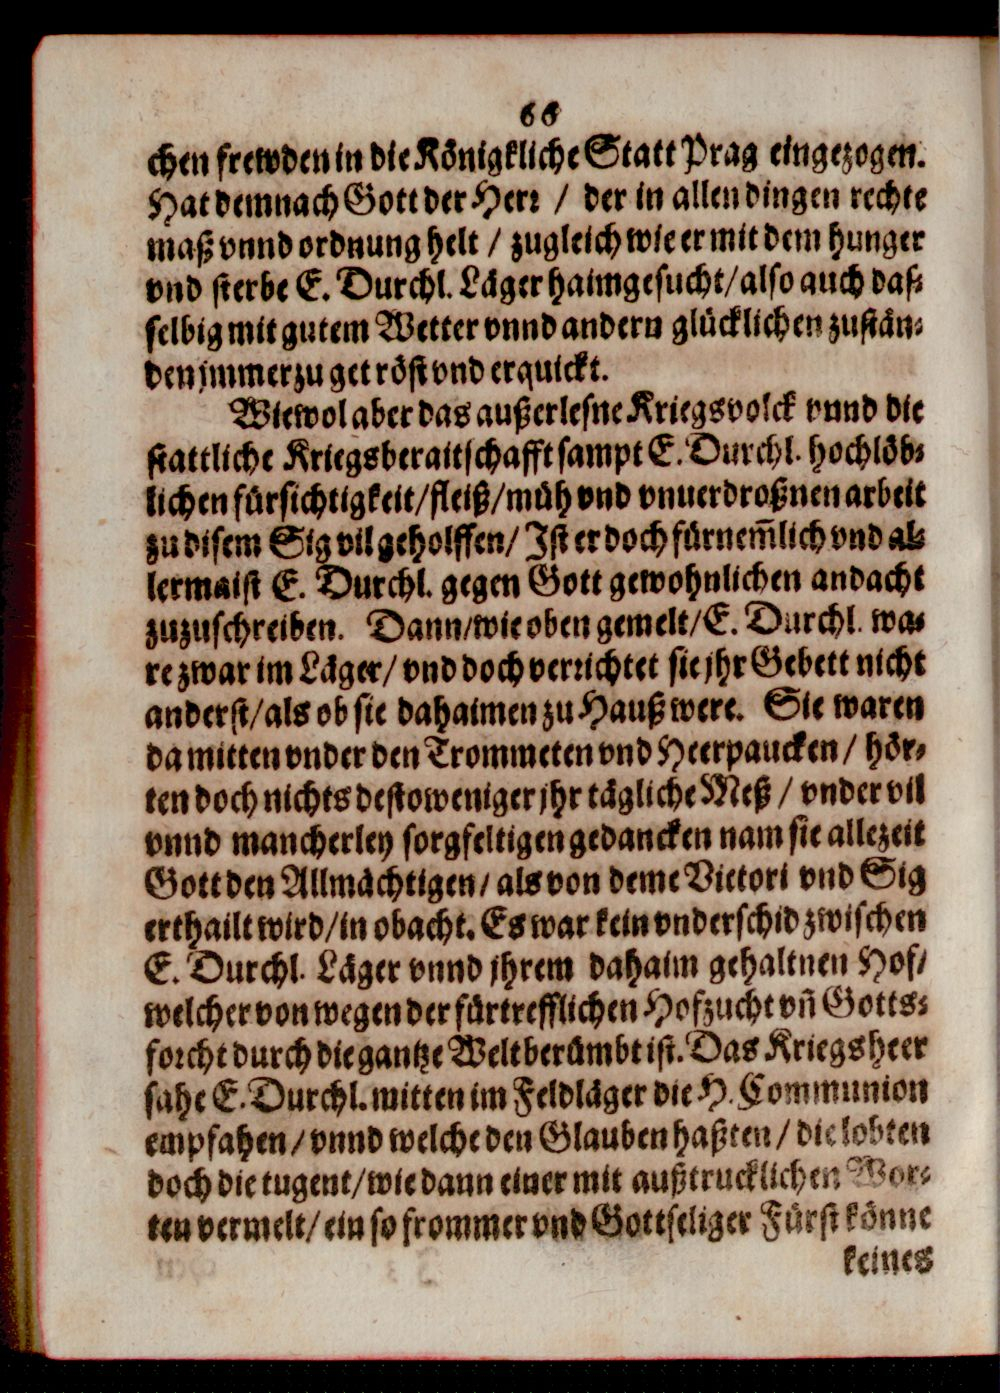 66
chen frewden in die Königkliche Statt Prag eingezogen.
Hat demnach Gott der Herr / der in allen dingen rechte
maß vnnd ordnung helt / zugleich wie er mit dem hunger
vnd sterbe E. Durchl. Läger haimgesucht/ also auch das⸗
selbig mit gutem Wetter vnnd andern glücklichen zustän⸗
den jmmerzu getröst vnd erquickt.
Wiewol aber das außerlesne Kriegsvolck vnnd die
stattliche Kriegsberaitschafft sampt E. Durchl. hochlöb⸗
lichen fürsichtigkeit/ fleiß/ müh vnd vnuerdroßnen arbeit
zu disem Sig vil geholffen/ Ist er doch fürnem̃lich vnd al⸗
lermaist E. Durchl. gegen Gott gewohnlichen andacht
zuzuschreiben. Dann/ wie oben gemelt/ E. Durchl. wa⸗
re zwar im Läger/ vnd doch verrichtet sie jhr Gebett nicht
anderst/ als ob sie dahaimen zu Hauß were. Sie waren
da mitten vnder den Trommeten vnd Heerpaucken / hör⸗
ten doch nichts destoweniger jhr tägliche Meß / vnder vil
vnnd mancherley sorgfeltigen gedancken nam sie allezeit
Gott den Allmächtigen/ als von deme Victori vnd Sig
erthailt wird/ in obacht. Es war kein vnderschid zwischen
E. Durchl. Läger vnnd jhrem dahaim gehaltnen Hof/
welcher von wegen der fürtrefflichen Hofzucht vñ Gotts⸗
forcht durch die gantze Welt berümbt ist. Das Kriegsheer
sahe E. Durchl. mitten im Feldläger die H. Communion
empfahen/ vnnd welche den Glauben haßten / die lobten
doch die tugent/ wie dann einer mit außtrucklichen Wor⸗
ten vermelt/ ein so frommer vnd Gottseliger Fürst könne
keines